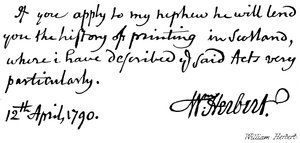 If you apply to my nephew he will lend
you the history of printing in Scotland,
where i have described ye said Acts very
particularly.
12th April, 1790.
Wm Herbert.
William Herbert.